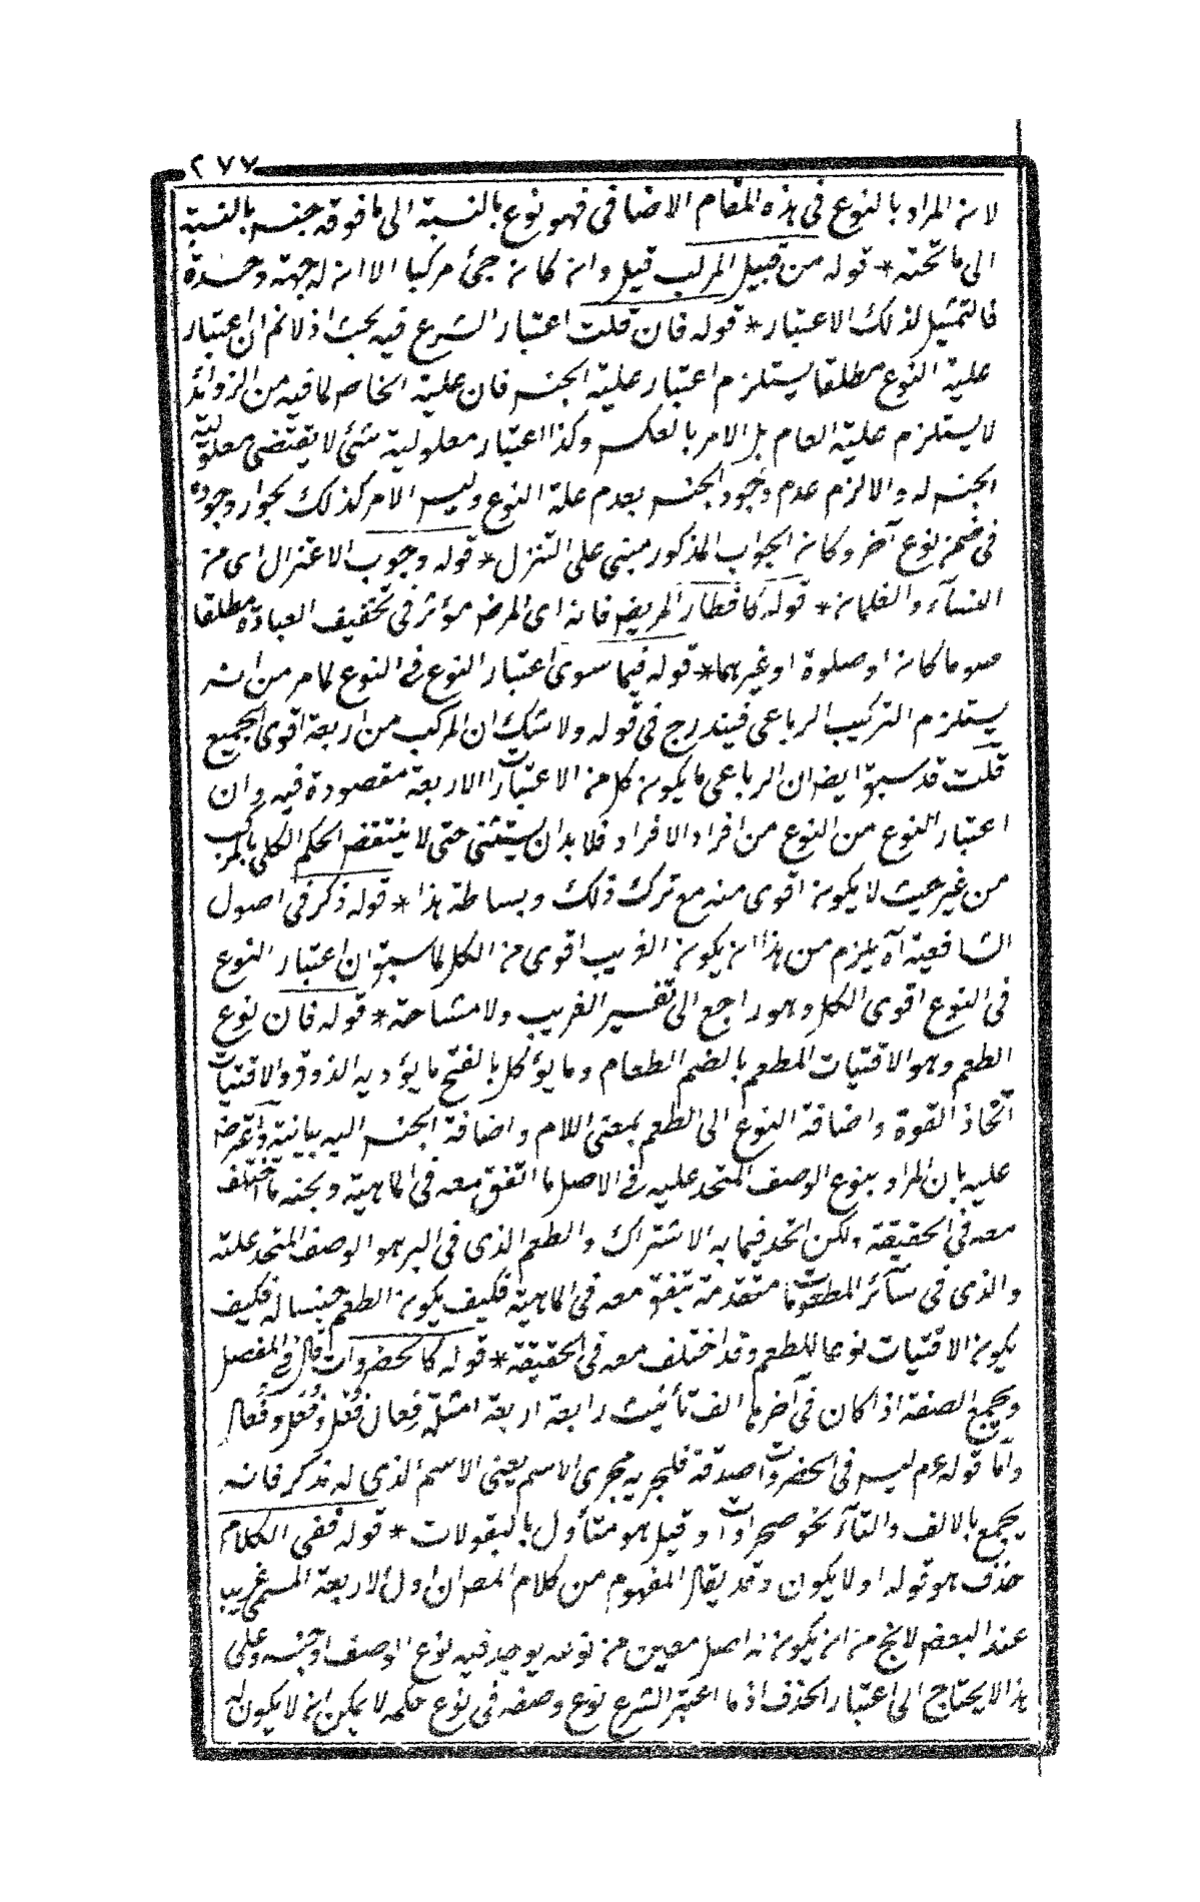 ٢٧٧
لان المراد بالنوع في هذه المقام الاضافي فهو نوع بالنسبة الى ما فوقه جنس بالنسبة
الى ما تحته * قوله من قبيل المركب قيل وان كان جئ مركبا الا ان له جهة وحدة
فالتمثيل لذلك الاعتبار * قوله فان قلت اعتبار الشرع فيه بحث اذ لا نم ان اعتبار
علية النوع مطلقا يستلزم اعتبار علية الجنس فان علية الخاص لما فيه من الزوائد
لا يستلزم علية العام بل الامر بالعكس وكذا اعتبار معلولية شئ لا يقتضى معلولية
الجنس له والا لزم عدم وجود الجنس بعدم علة النوع وليس الامر كذلك بجواز وجوده
في ضمن نوع آخر وكان الجواب المذكور مبنى على التنزل * قوله وجوب الاعتزال اى من
النسآء والغلمان * قوله كافطار المريض فانه اى المرض مؤثر في تخفيف العبادة مطلقا
صوما كان او صلوة او غيرهما * قوله فيما سوى اعتبار النوع في النوع لما مر من انه
يستلزم التركيب الرباعى فيندرج في قوله ولا شك ان المركب من اربعة اقوى الجميع
قلت قد سبق ايضا ان الرباعى ما يكون كل من الاعتبارات الاربعة مقصودة فيه وان
اعتبار النوع من النوع من افراد الافراد فلا بد ان يستثنى حتى لا ينتقض الحكم الكلى بالمركب
من غير حيث لا يكون اقوى منه مع ترك ذلك وبساطة هذا * قوله ذكر في اصول
الشافعية آه يلزم من هذا ان يكون الغريب اقوى من الكل لما سبق ان اعتبار النوع
في النوع اقوى الكل وهو راجع الى تفسير الغريب ولا مشاحة * قوله فان نوع
الطعم وهو الاقتيات المطعم بالضم الطعام وما يؤكل بالفتح ما يؤديه الذوق والاقتيات
اتخاذ القوة واضافة النوع الى الطعم بمعنى اللام واضافة الجنس اليه بيانية واعترض
عليه بان المراد بنوع الوصف المتحد عليه في الاصل ما اتفق معه في الماهية وبجنسه ما اختلف
معه في الحقيقة ولكن اتحد فيما به الاشتراك والطعم الذى في البر هو الوصف المتحد علته
والذى في سآئر المطعومات متقدمة يتفق معه في الماهية فكيف يكون الطعم جنسا له فكيف
يكون الاقتيات نوعا للطعم وقد اختلف معه في الحقيقة * قوله كالخضروات قال في المفصل
ويجمع الصفة اذا كان في آخرها الف تأنيث رابعة اربعة امثلة فِعال فُعْل وفُعَل وفُعال
واما قوله عم ليس في الخضروات صدقة فلجريه مجرى الاسم يعنى الاسم الذى له مذكر فانه
يجمع بالالف والتآء نحو صحراوات وقيل هو متأول بالبقولات * قوله ففى الكلام
حذف هو قوله او لا يكون وقد يقال المفهوم من كلام المص ان اول الاربعة المسمى غريب
عند البعض لا يخ من ان يكون له اصل معين من نوعه يوجد فيه نوع الوصف او جنسه وعلى
هذا لا يحتاج الى اعتبار الحذف اذ ما اعتبر الشرع نوع وصفه في نوع حكمه لا يمكن ان لا يكون له